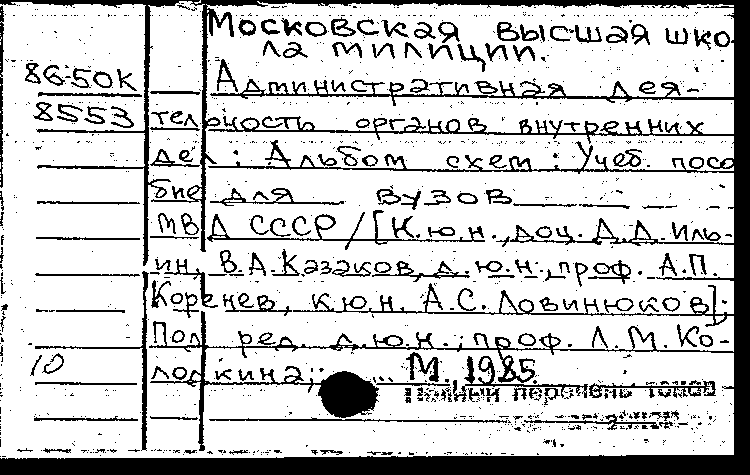 Московская высшая шко-
ла милиции.
86-50К
Административная дея-
8553
тельность органов внутренних
дел: Альбом схем: Учеб. посо
бие для вузов
МВД СССР / [К.ю.н., доц. Д.Д. Иль-
ин, В.А. Казаков, д.ю.н., проф. А.П.
Коренев, к.ю.н. А.С. Ловинюков];
Под ред. д.ю.н.; проф. Л.М. Ко-
10
лодкина; ... М. 1985
Полный перечень томов